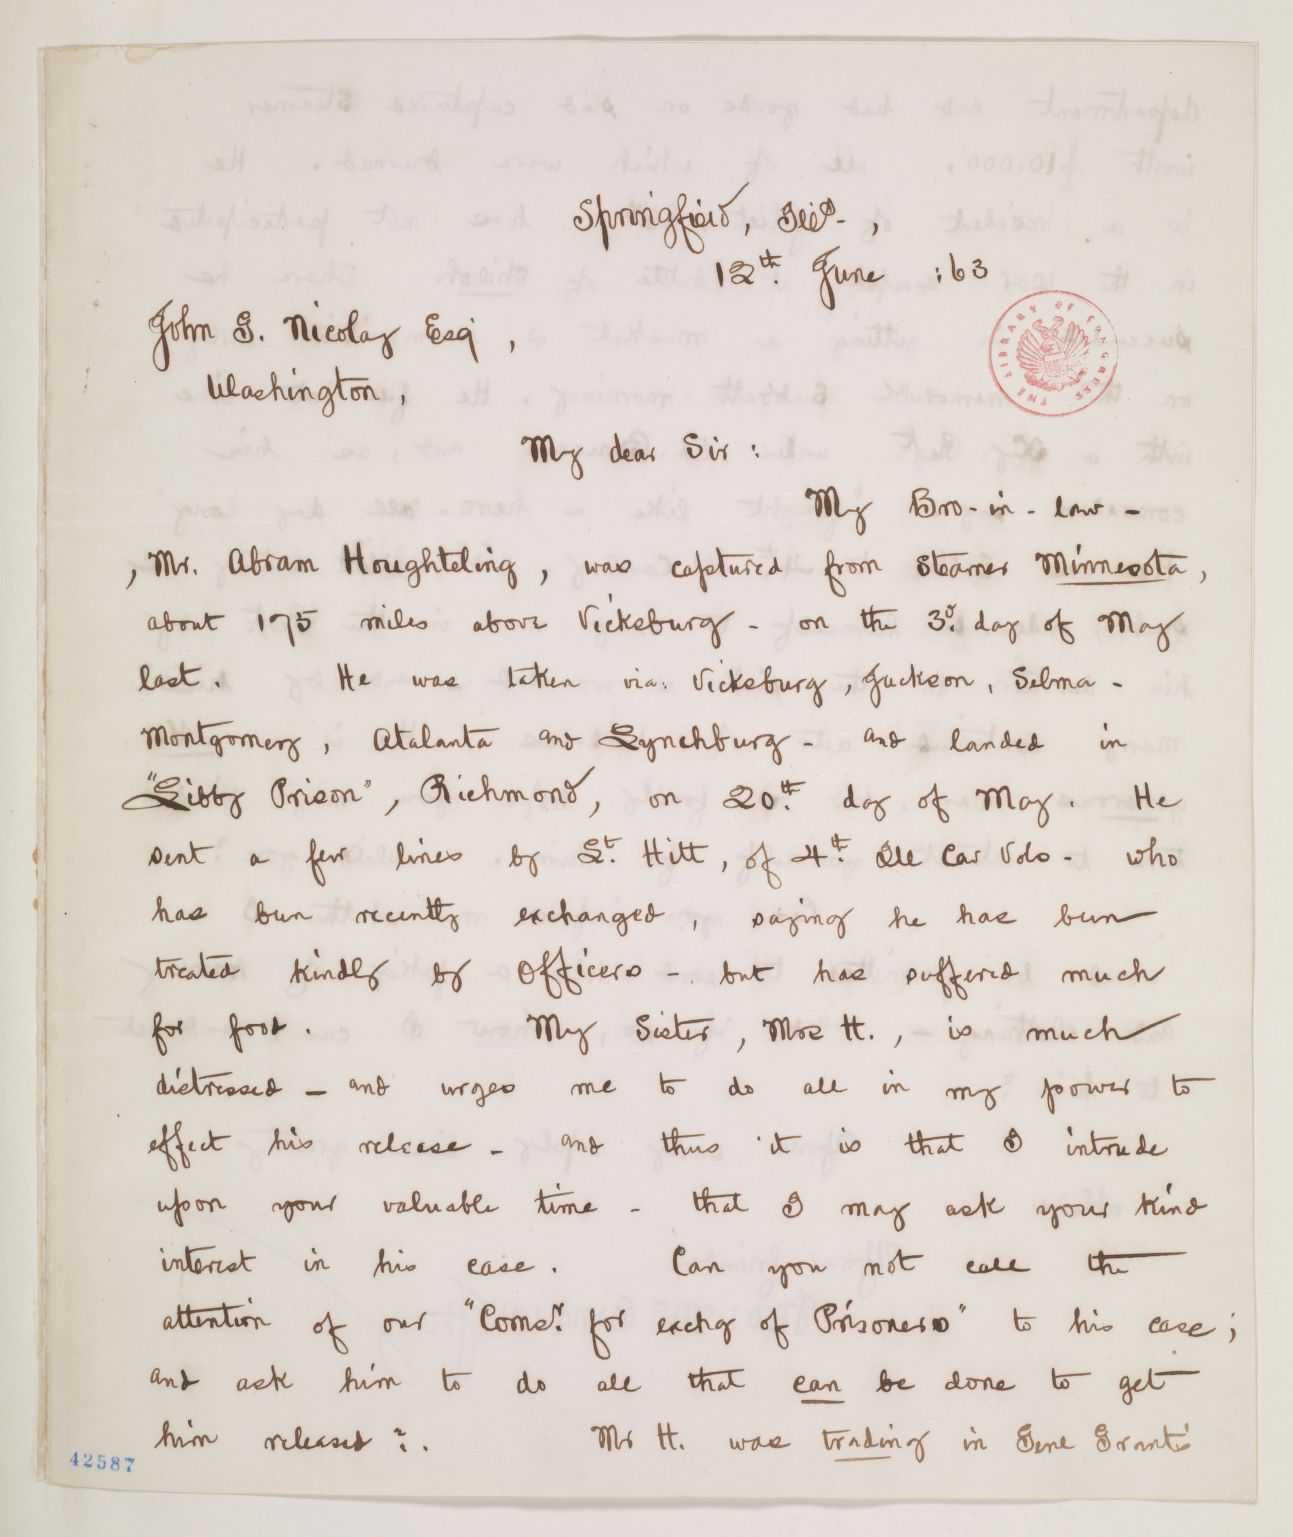 Springfield, Ills-,
12th. June :63
THE LIBRARY OF CONGRESS
John G. Nicolay Esq,
Washington,
My dear Sir:
My Bro-in-law-
, Mr. Abram Houghteling, was captured from Steamer Minnesota,
about 175 miles above Vicksburg - on the 3d. day of May
last. He was taken via: Vicksburg, Jackson, Selma -
Montgomery, Atalanta and Lynchburg - and landed in
"Libby Prison", Richmond, on 20th. day of May. He
sent a few lines by Lt. Hitt, of 4th. Ill Cav Vols - who
has been recently exchanged, saying he has been
treated kindly by officers - but has suffered much
for food. My Sister, Mrs H., is much
distressed - and urges me to do all in my power to
effect his release - and thus it is that I intrude
upon your valuable time - that I may ask your kind
interest in his case. Can you not call the
attention of our "Comsr. for exchg of Prisoners" to his case;
and ask him to do all that can be done to get
him released?. Mr H. was trading in Genl Grant's
42587